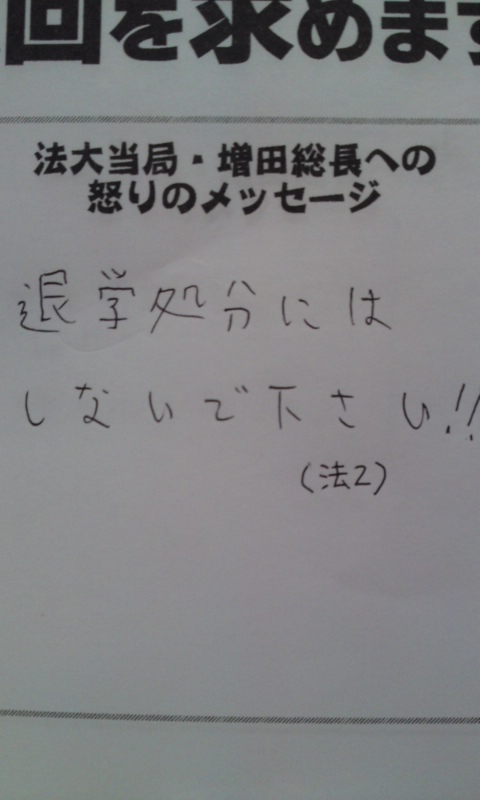 回を求めます
法大当局・増田総長への
怒りのメッセージ
退学処分には
しないで下さい!!
(法2)